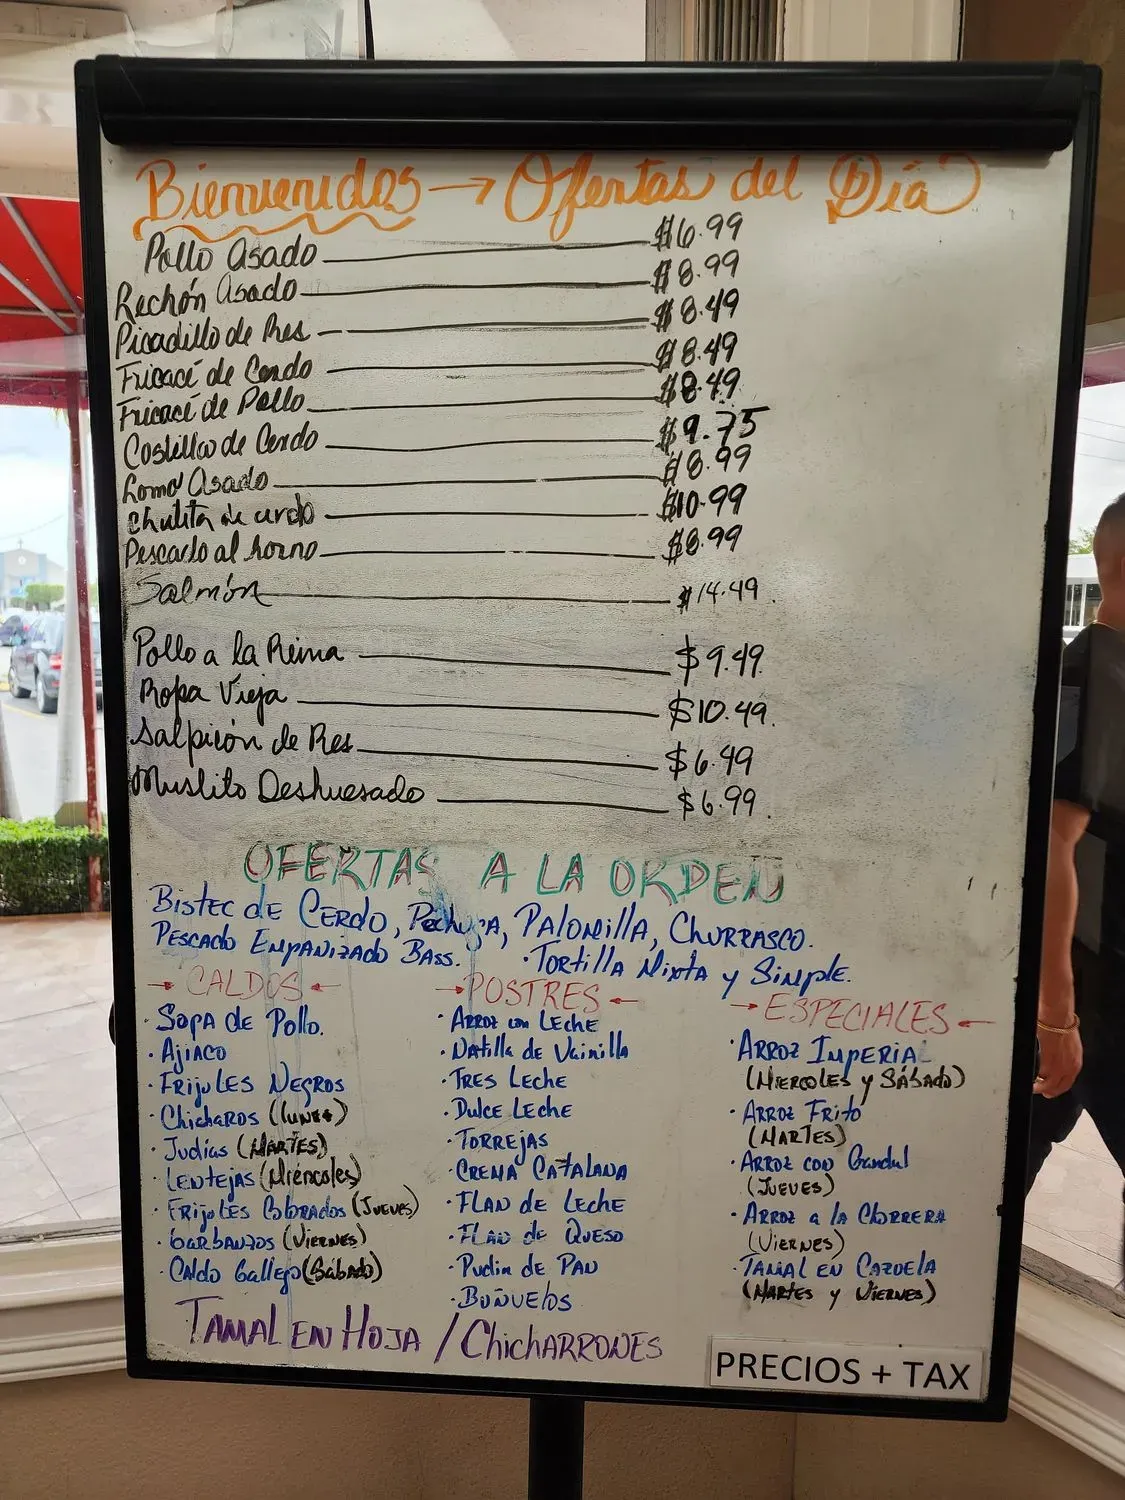 Bienvenidos → Ofertas del Día
Pollo Asado $6.99
Lechón Asado $8.99
Picadillo de Res $8.49
Fricacé de Cerdo $8.49
Fricacé de Pollo $8.49
Costilla de Cerdo $9.75
Lomo Asado $8.99
Chuleta de cerdo $10.99
Pescado al horno $8.99
Salmón $14.49
Pollo a la Reina $9.49
Ropa Vieja $10.49
Salpicón de Res $6.49
Muslito Deshuesado $6.99
OFERTAS A LA ORDEN
Bistec de Cerdo, Pechuga, Palomilla, Churrasco.
Pescado Empanizado Bass. · Tortilla Mixta y Simple.
→ CALDOS ←
· Sopa de Pollo.
· Ajiaco
· Frijoles Negros
· Chicharos (Lunes)
· Judias (Martes)
· Lentejas (Miércoles)
· Frijoles Colorados (Jueves)
· Garbanzos (Viernes)
· Caldo Gallego (Sábado)
→ POSTRES ←
· Arroz con Leche
· Natilla de Vainilla
· Tres Leche
· Dulce Leche
· Torrejas
· Crema Catalana
· Flan de Leche
· Flan de Queso
· Pudin de Pan
· Boñuelos
→ ESPECIALES ←
· Arroz Imperial
(Miercoles y Sábado)
· Arroz Frito
(Martes)
· Arroz con Gandul
(Jueves)
· Arroz a la Chorrera
(Viernes)
· Tamal en Cazuela
(Martes y Viernes)
Tamal en Hoja / Chicharrones
PRECIOS + TAX